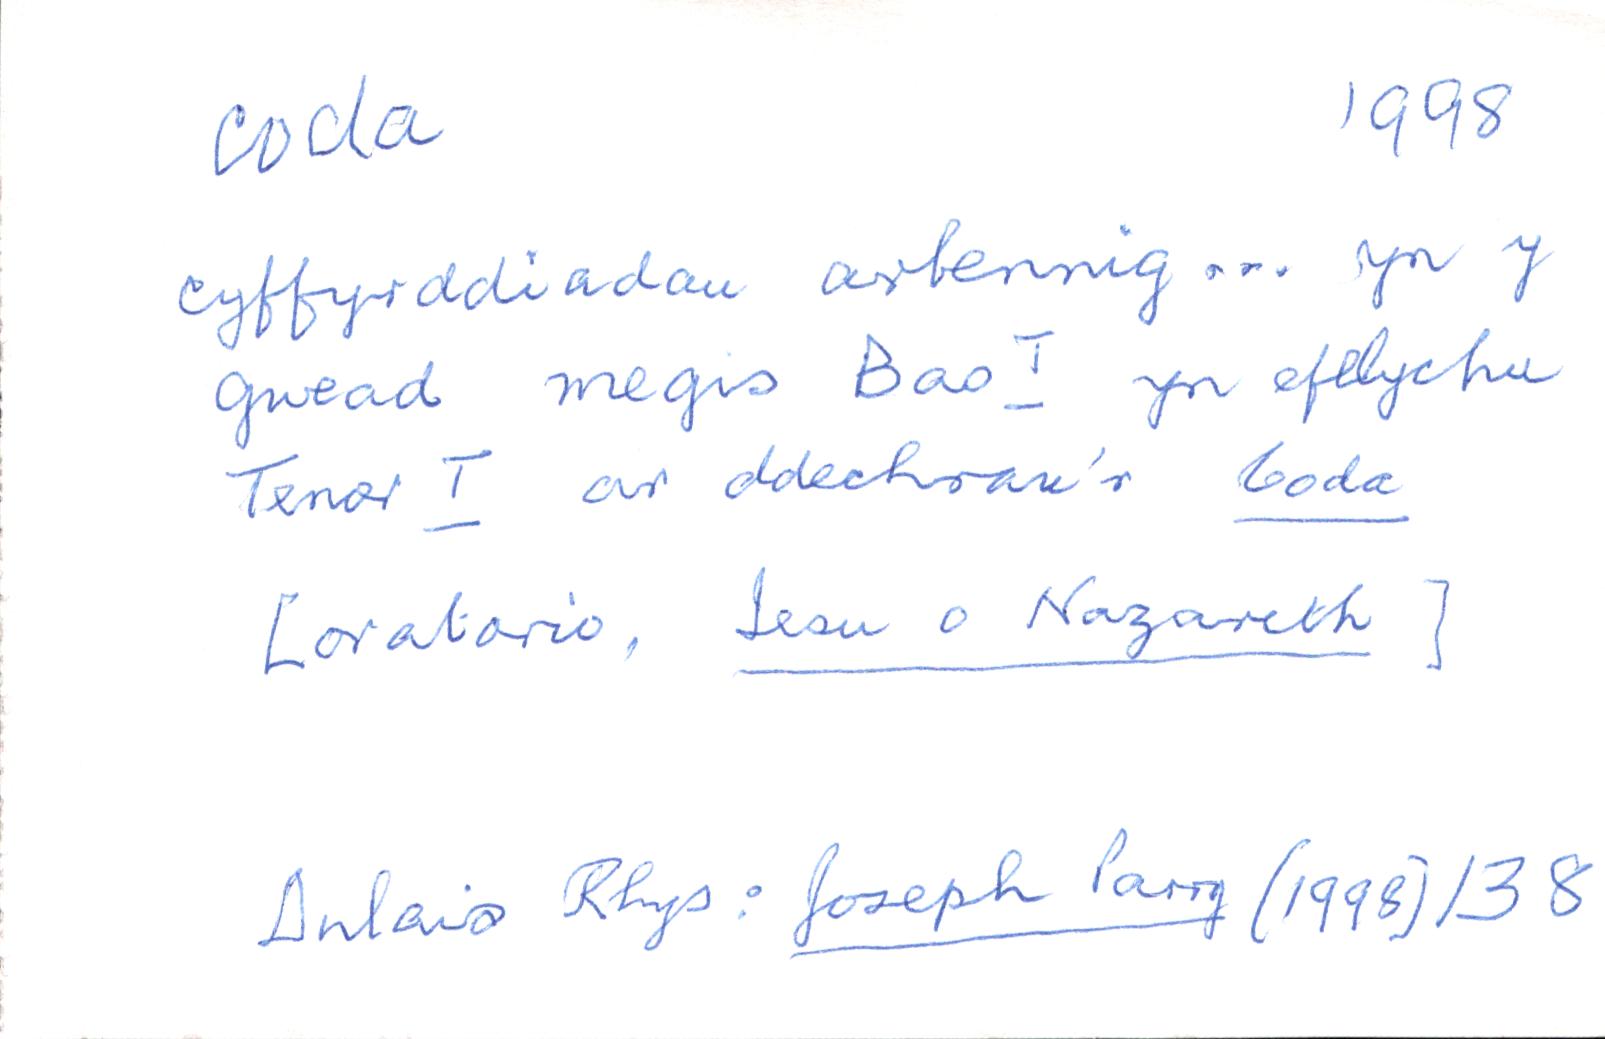 coda 1998
cyffyrddiadau arbennig ... yn y
gwead megis Bas I yn efelychu
Tenor I ar ddechrau'r Coda
[oratorio, Iesu o Nazareth]
Dulais Rhys: Joseph Parry (1998) 138